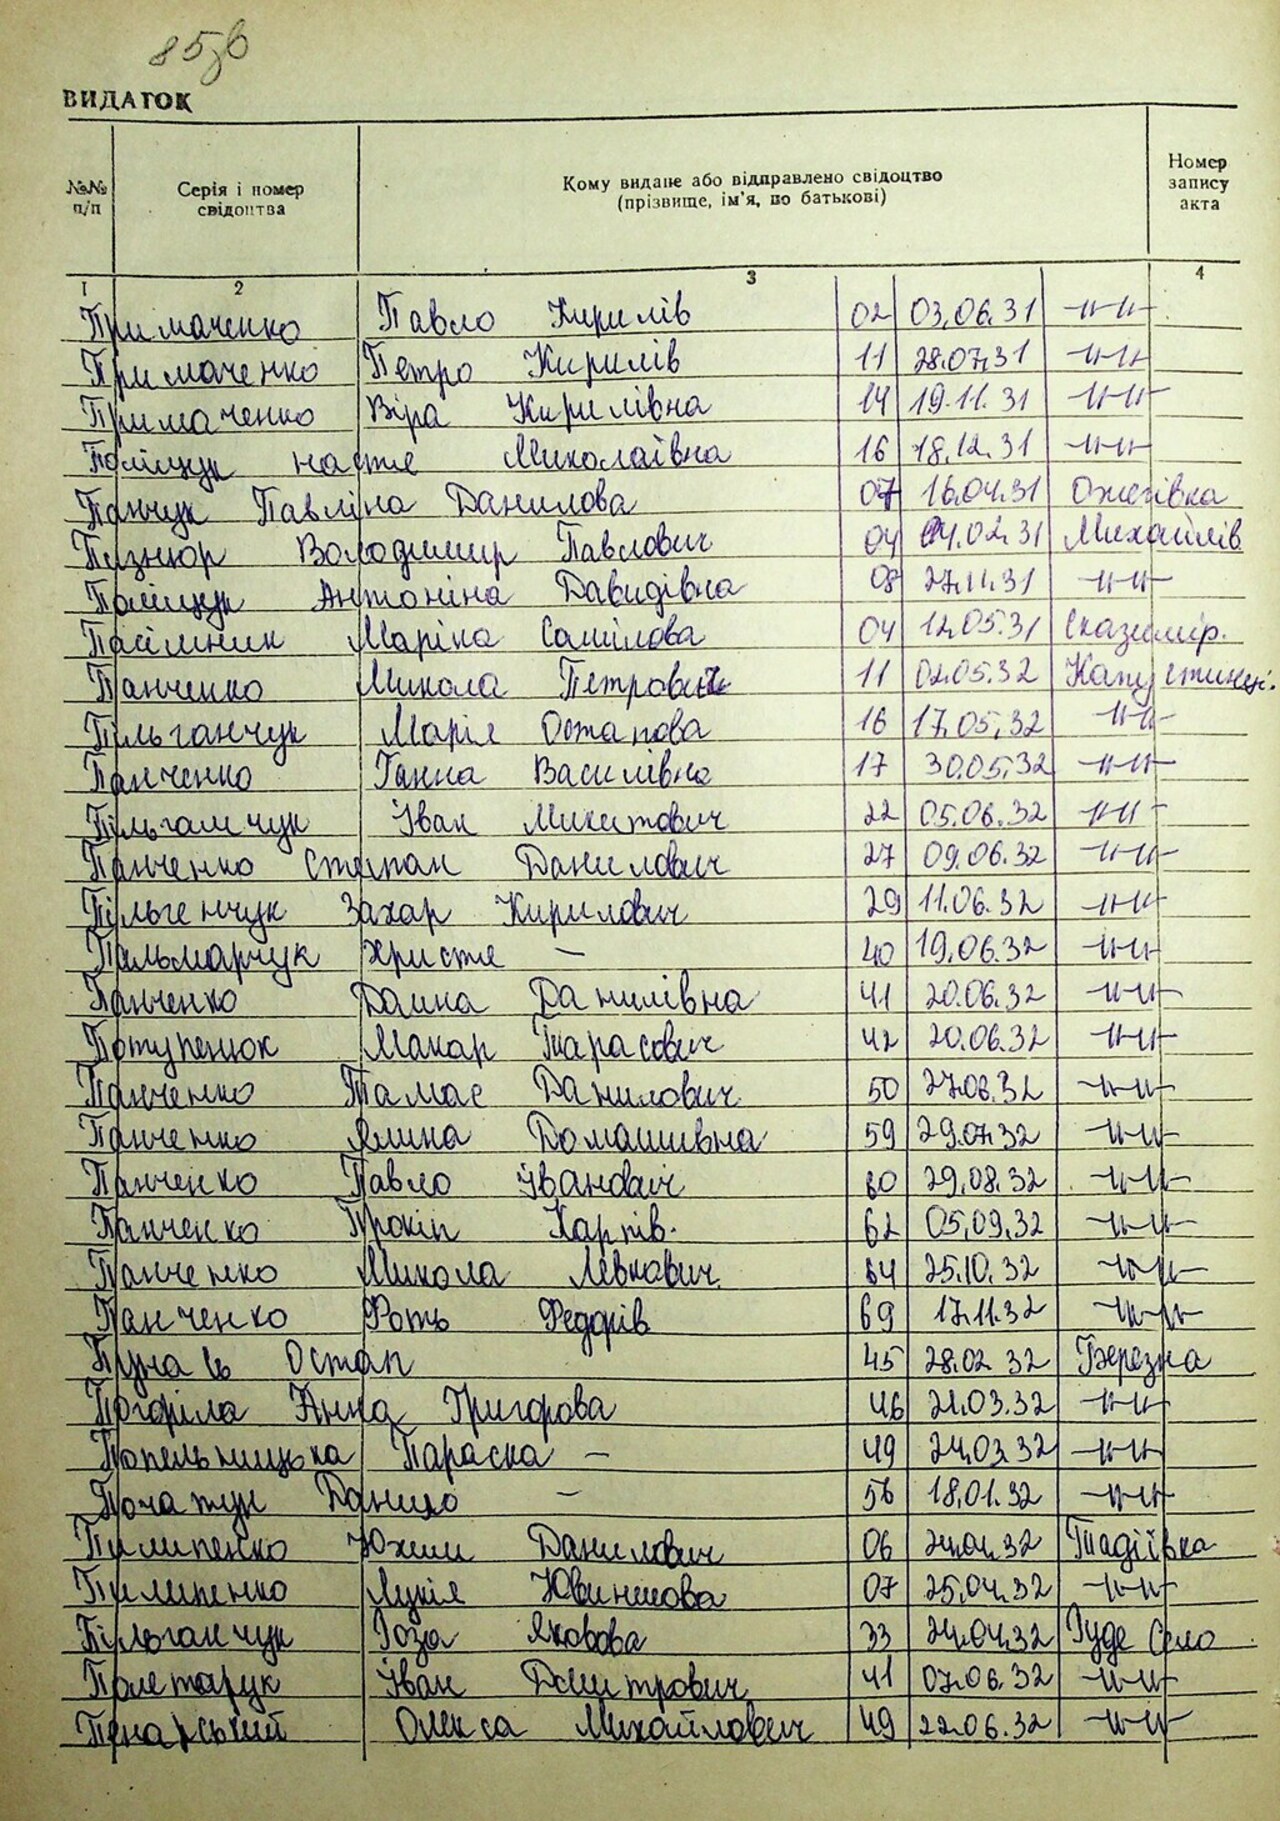 85зв
ВИДАТОК
№№ п/п
Серія і номер свідоцтва
Кому видане або відправлено свідоцтво (прізвище, ім'я, по батькові)
Номер запису акта
1 2 3 4
Примаченко Павло Кирилів 02 03.06.31 -//-//-
Примаченко Петро Кирилів 11 28.07.31 -//-//-
Примаченко Віра Кирилівна 14 19.11.31 -//-//-
Поліщук Настя Миколаївна 16 18.12.31 -//-//-
Панчук Павліна Данилова 07 16.04.31 Ожегівка
Пизнюр Володимир Павлович 04 04.02.31 Михайлів
Поліщук Антоніна Давидівна 08 27.11.31 -//-//-
Пасішник Маріка Самілова 04 12.05.31 Сказимір.
Панченко Микола Петрович 11 02.05.32 Капустинец.
Пільганчук Марія Остапова 16 17.05.32 -//-//-
Панченко Ганна Василівна 17 30.05.32 -//-//-
Пільгамчук Іван Микитович 22 05.06.32 -//-//-
Панченко Степан Данилович 27 09.06.32 -//-//-
Пільгенчук Захар Кирилович 29 11.06.32 -//-//-
Пальмарчук Христя — 40 19.06.32 -//-//-
Панченко Домна Данилівна 41 20.06.32 -//-//-
Потупенюк Макар Тарасович 42 20.06.32 -//-//-
Панченко Тамас Данилович 50 27.06.32 -//-//-
Панченко Ялина Домашивна 59 29.07.32 -//-//-
Панченко Павло Іванович 60 29.08.32 -//-//-
Панченко Прокіп Карпів. 62 05.09.32 -//-//-
Панченко Микола Левкович 64 25.10.32 -//-//-
Панченко Фоть Федорів 69 17.11.32 -//-//-
Остап 45 28.02.32 Березна
Погоріла Анна Григорова 46 21.03.32 -//-//-
Попельницька Параска — 49 24.03.32 -//-//-
Данило — 56 18.01.32 -//-//-
Пилипенко Юхим Данилович 06 24.04.32 Тадіївка
Пилипенко Лукія Ювимова 07 25.04.32 -//-//-
Пільганчук Роза Яковова 33 24.04.32 Руде Село
Полетарук Іван Дмитрович 41 07.06.32 -//-//-
Олекса Михайлович 49 22.06.32 -//-//-